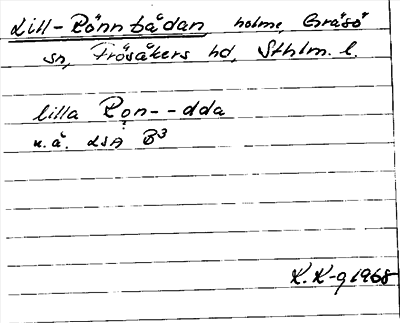 Lill-Rönnbådan holme, Gräsö
sn, Frösåkers hd, Sthlm. l.
lilla Rọn--dda
u.å. LSA B³
K. K-g 1968